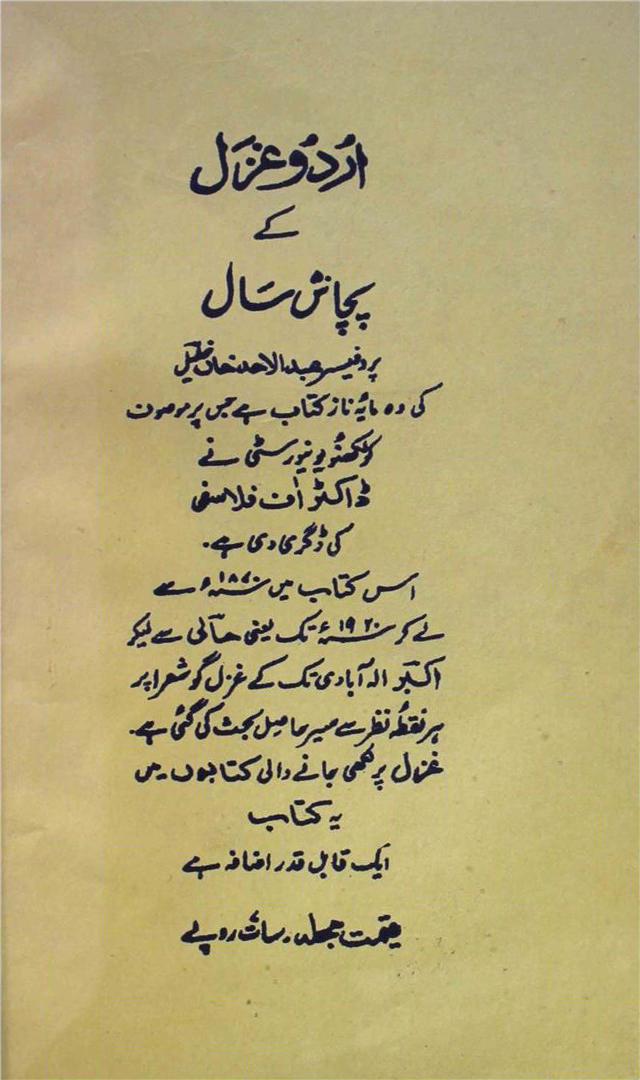 اُردُو غزَل
کے
پچاسْ سَال
پروفیسر عبدالاحد خاں خلیلؔ
کی وہ مایۂ ناز کتاب ہے جس پر موصوف
کو لکھنؤ یونیورسٹی نے
ڈاکٹر اف فلاسفی
کی ڈگری دی ہے۔
اس کتاب میں ۱۸۷۰ء سے
لے کر ۱۹۲۰ء تک یعنی حالؔی سے لیکر
اکبرؔ الہ آبادی تک کے غزل گو شعرا پر
ہر نقطۂ نظر سے سیر حاصل بحث کی گئی ہے۔
غزل پر لکھی جانے والی کتابوں میں
یہ کتاب
ایک قابل قدر اضافہ ہے
قیمت مجلد۔ سات روپے